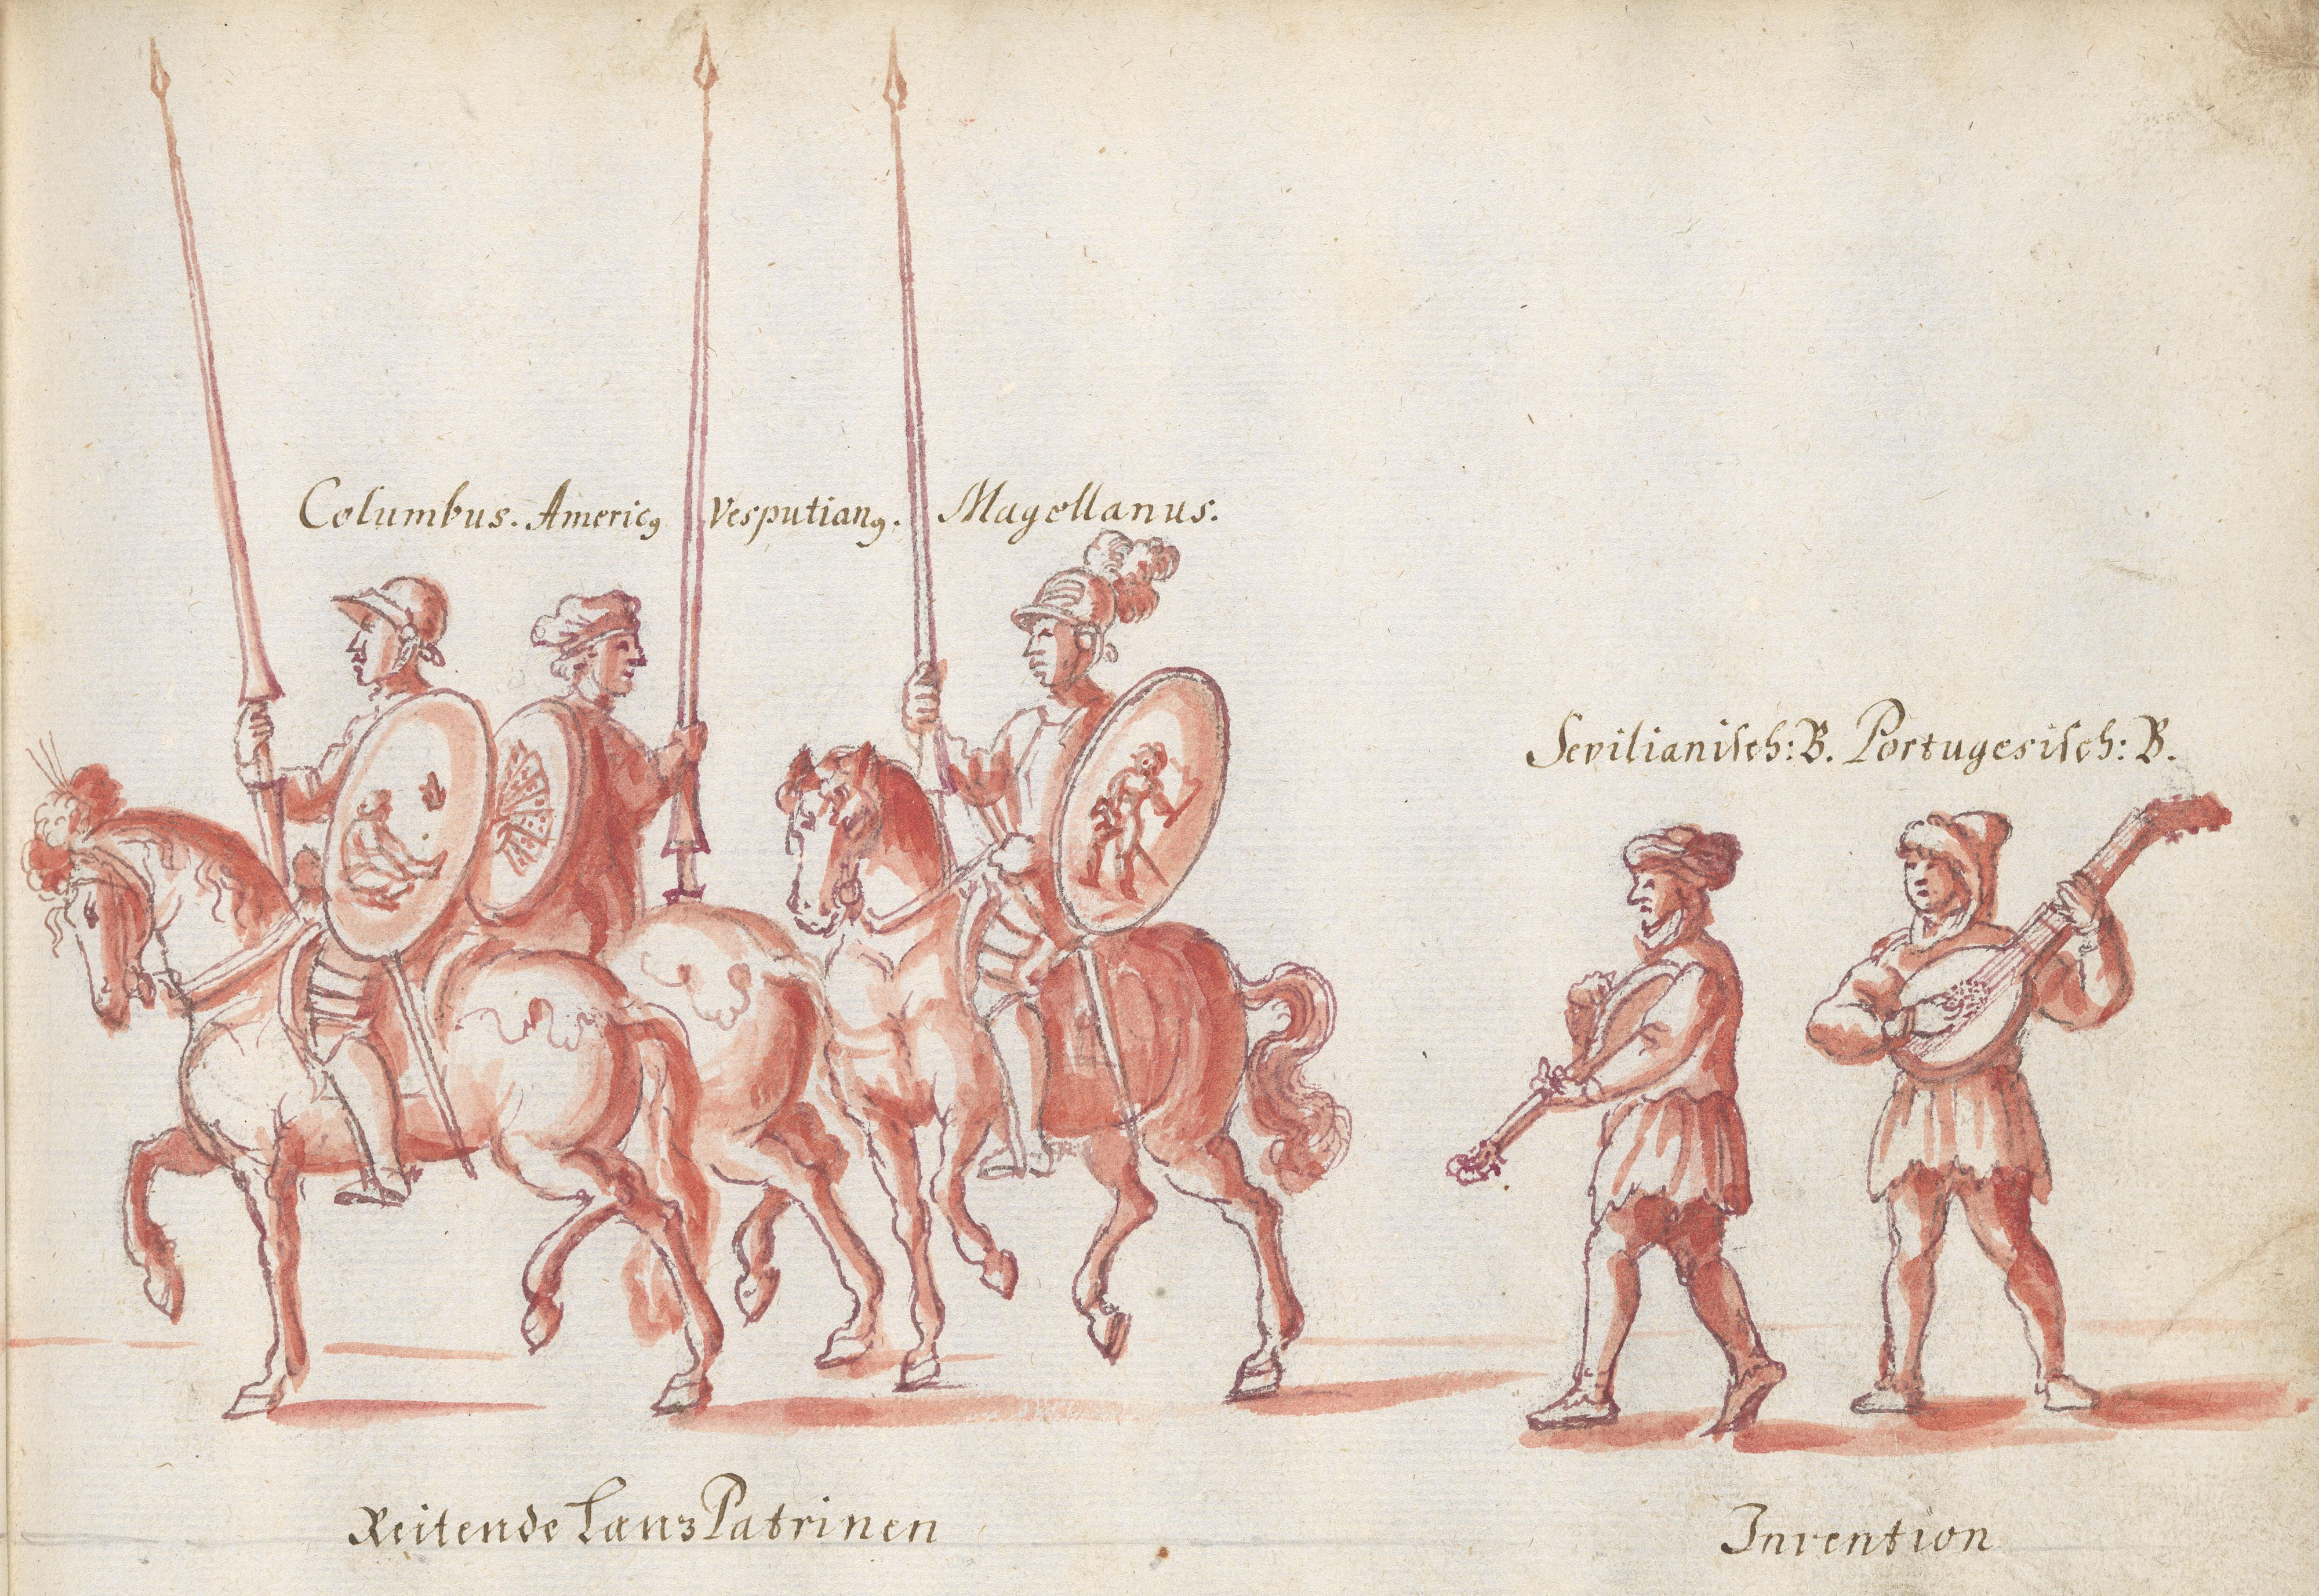 Columbus. Americꝯ Vesputianꝯ. Magellanus.
Sevilianisch: B. Portugesisch: B.
Reitende Lanz Patrinen
Invention